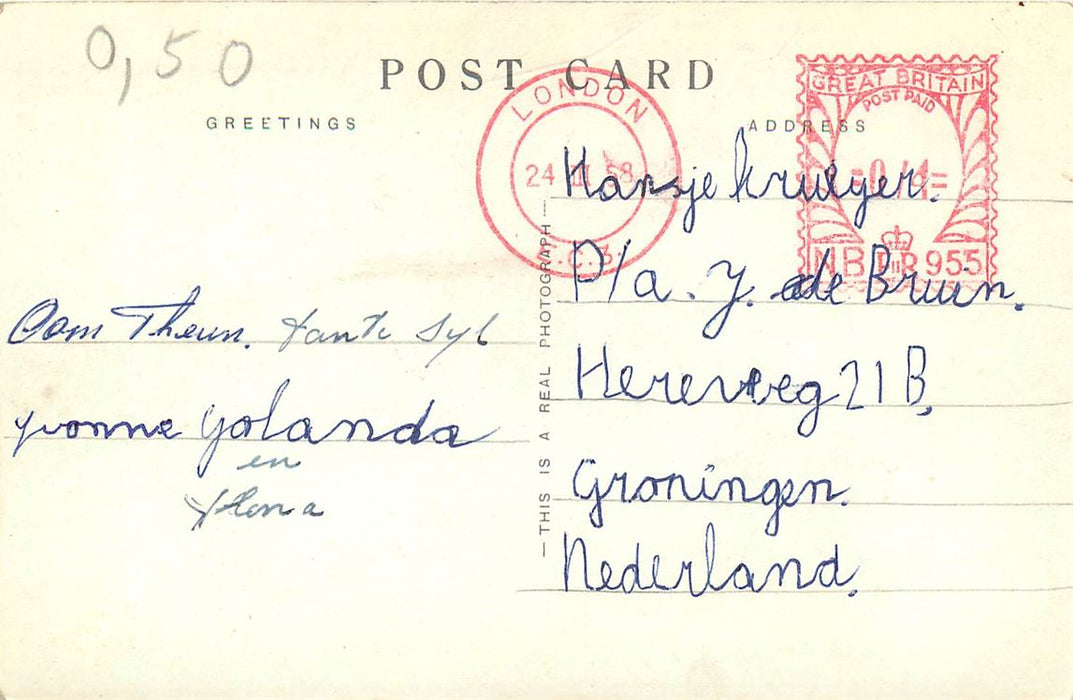 0,50
POST CARD
GREETINGS
ADDRESS
LONDON
24 II 58
C.3.
GREAT BRITAIN
POST PAID
=0/4=
NB E II R 955
Oom Theun. tante Syl
yvonne yolanda
en
Ylona
—THIS IS A REAL PHOTOGRAPH—
Hansje kruyer.
P/a. J. de Bruin.
Hereweg 21 B,
Groningen.
Nederland.